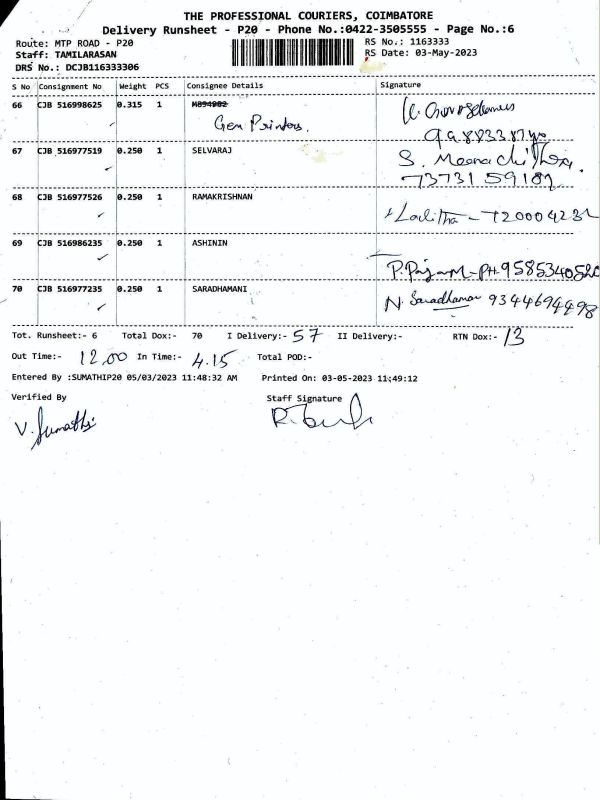 THE PROFESSIONAL COURIERS, COIMBATORE
Delivery Runsheet - P20 - Phone No.:0422-3505555 - Page No.:6
Route: MTP ROAD - P20 RS No.: 1163333
Staff: TAMILARASAN RS Date: 03-May-2023
DRS No.: DCJB116333306
S No Consignment No Weight PCS Consignee Details Signature
66 CJB 516998625 0.315 1
Gem Printers.
67 CJB 516977519 0.250 1 SELVARAJ S.
7373159189
68 CJB 516977526 0.250 1 RAMAKRISHNAN
Lalitha -
69 CJB 516986235 0.250 1 ASHININ
70 CJB 516977235 0.250 1 SARADHAMANI N. 9344694498
Tot. Runsheet:- 6 Total Dox:- 70 I Delivery:- 57 II Delivery:- RTN Dox:- 13
Out Time:- 12.00 In Time:- 4.15 Total POD:-
Entered By :SUMATHIP20 05/03/2023 11:48:32 AM Printed On: 03-05-2023 11:49:12
Verified By Staff Signature
V. Sumathi